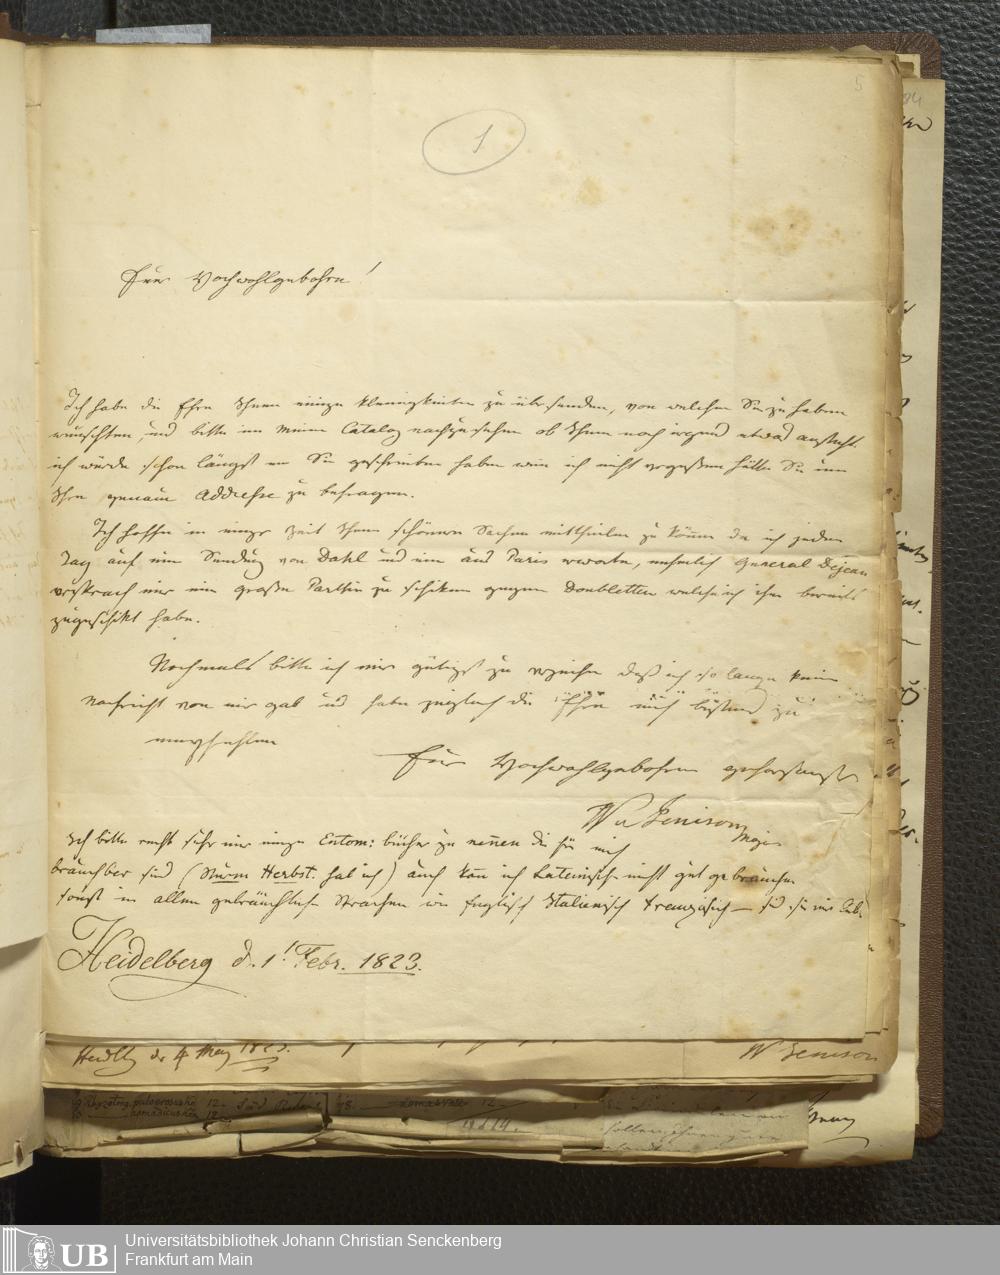 5
1
Euer Hochwohlgebohrn!
Ich habe die Ehre Ihnen einige Kleinigkeiten zu übersenden, von welchen Sie zu haben
wünschten, und bitte im meinem Catalog nachzusehen ob Ihnen noch irgend etwas ansteht
ich würde schon längst an Sie geschrieben haben wen ich nicht vergessen hätte Sie um
Ihre genaue Addresse zu befragen.
Ich hoffe in einger Zeit Ihnen schönere Sachen mittheilen zu könen da ich jeden
Tag auf eine Sendung von Dahl und eine aus Paris erwarte, nehmlich General Dejean
versprach mir eine große Parthie zu schiken gegen Doubletten welche ich ihm bereits
zugeschikt habe.
Nochmals bitte ich mir gütigst zu verzeihen daß ich so lange keine
Nachricht von mir gab und habe zugleich die Ehre mich bestens zu
empfehlen
Euer Hochwohlgebohren gehorsamster
W v Jenison
Major
Ich bitte recht sehr mir einige Entom: bücher zu nenen die für mich
brauchbar sind (Sturm Herbst. hab ich) auch kan ich Lateinische nicht gut gebrauchen
sonst in allen gebräuchlichen Sprachen wie Englisch Italienisch Französisch —
Heidelberg d. 1t Febr. 1823.
Heidlb de 4 May 1823.
W Jenison
12 Süd
12
12
UB
Universitätsbibliothek Johann Christian Senckenberg
Frankfurt am Main